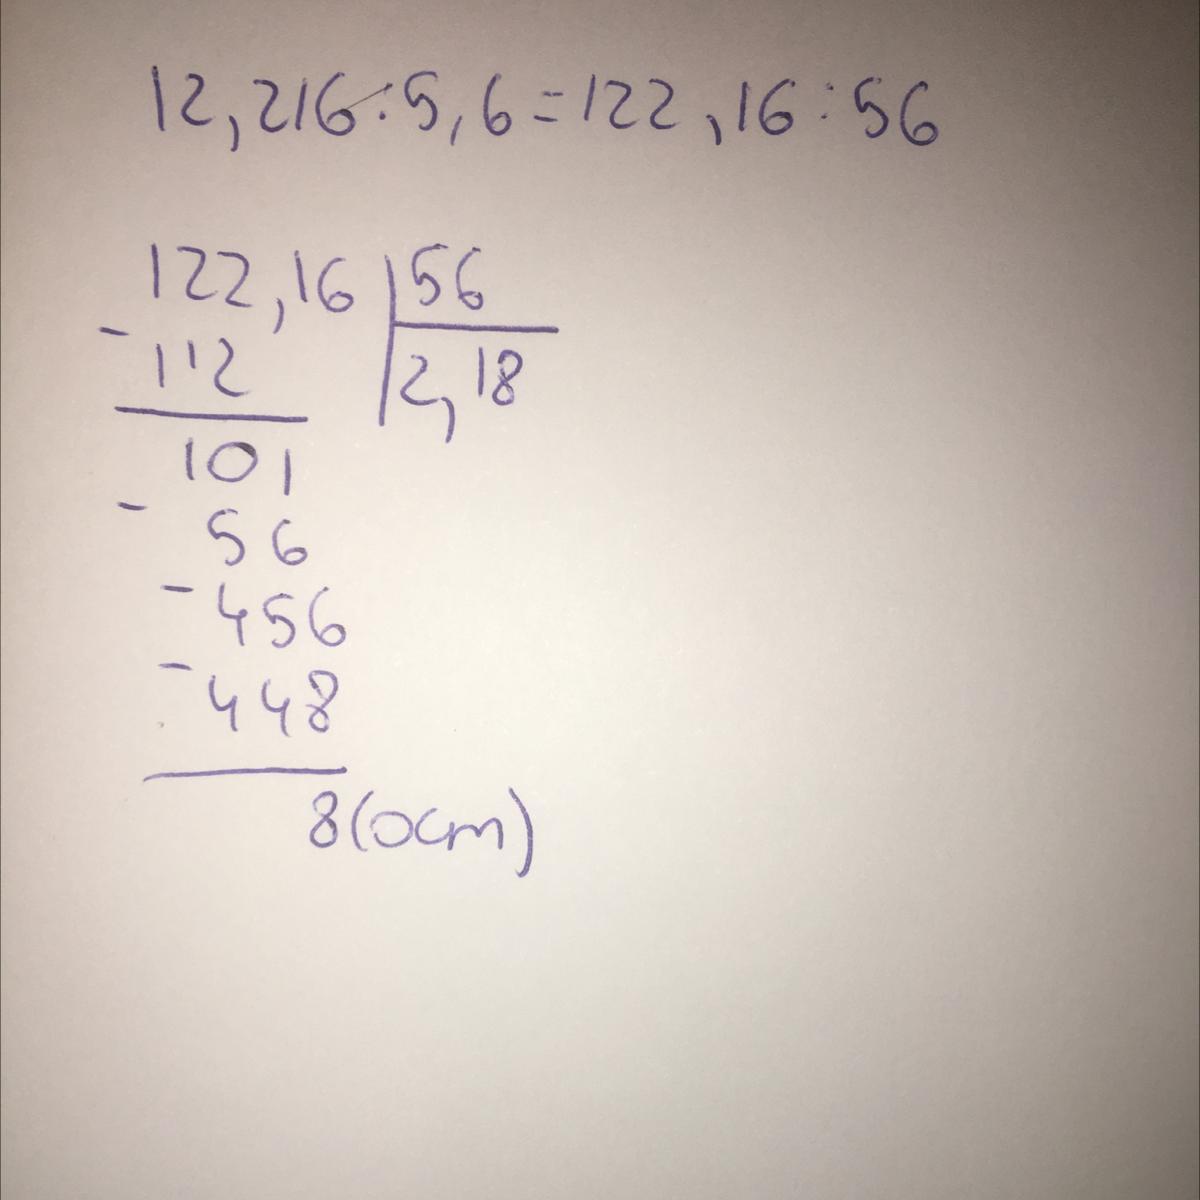 12,216:5,6=122,16:56
122,16 56
- 112 2,18
101
- 56
- 456
- 448
8(ост)